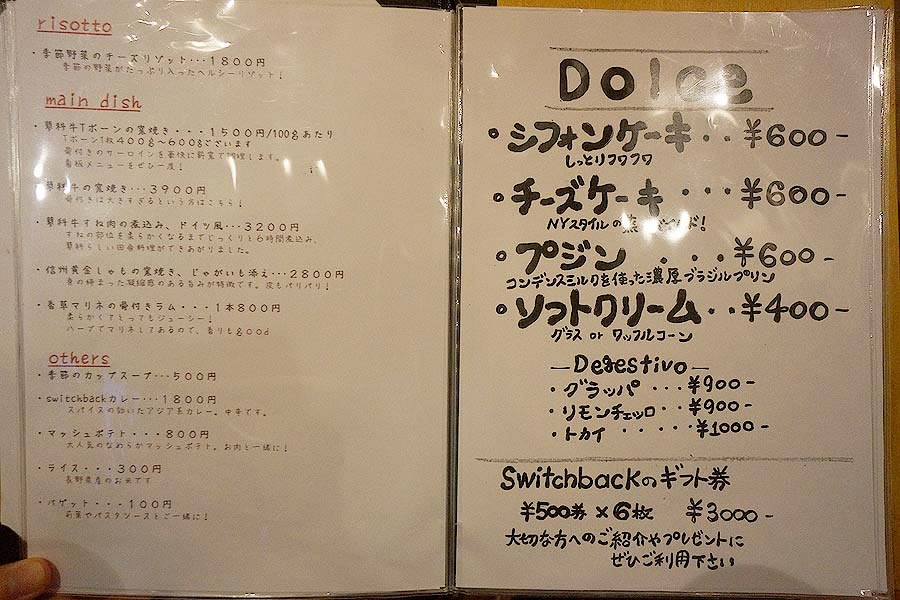 risotto
・季節野菜のチーズリゾット・・・1800円
季節の野菜がたっぷり入ったヘルシーリゾット！
main dish
・蓼科牛Tボーンの窯焼き・・・1500円/100gあたり
Tボーン1枚400g〜600gございます
骨付きのサーロインを豪快に薪窯で調理します。
看板メニューをぜひ一度！
・蓼科牛の窯焼き・・・3900円
骨付きは大きすぎるという方はこちら！
・蓼科牛すね肉の煮込み、ドイツ風・・・3200円
すねの部位を柔らかくなるまでじっくりと6時間煮込み、
蓼科らしい田舎料理ができあがりました。
・信州黄金しゃもの窯焼き、じゃがいも添え・・・2800円
身の締まった凝縮感のある旨みが特徴です。皮もパリパリ！
・香草マリネの骨付きラム・・・1本800円
柔らかくてとってもジューシー！
ハーブでマリネしてあるので、香りもgood
others
・季節のカップスープ・・・500円
・switchbackカレー・・・1800円
スパイスの効いたアジア系カレー。中辛です。
・マッシュポテト・・・800円
大人気のなめらかマッシュポテト。お肉と一緒に！
・ライス・・・300円
長野県産のお米です
・バゲット・・・100円
前菜やパスタソースとご一緒に！
Dolce
・シフォンケーキ・・¥600-
しっとりフワフワ
・チーズケーキ・・・¥600-
NYスタイルの
・プジン・・・¥600-
コンデンスミルクを使った濃厚ブラジルプリン
・ソフトクリーム・・¥400-
グラス or ワッフルコーン
—Degestivo—
・グラッパ・・・¥900-
・リモンチェッロ・・¥900-
・トカイ・・・・・¥1000-
Switchbackのギフト券
¥500券×6枚 ¥3000-
大切な方へのご紹介やプレゼントに
ぜひご利用下さい